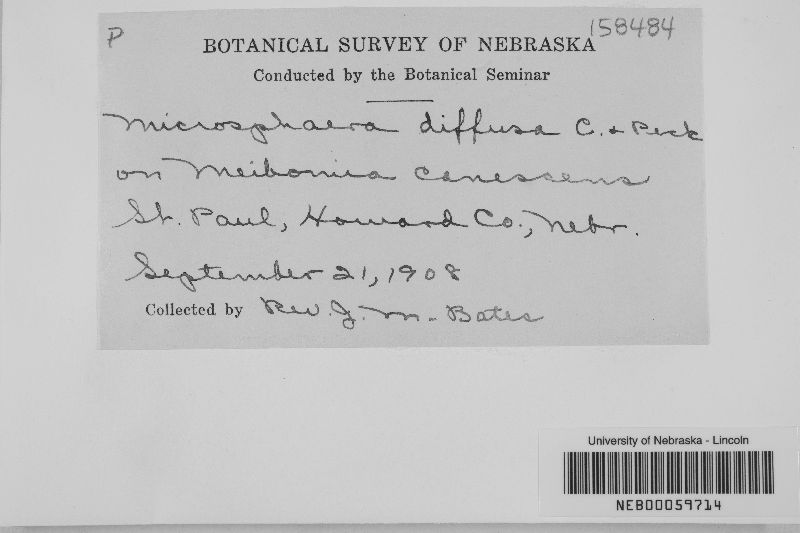 P
158484
BOTANICAL SURVEY OF NEBRASKA
Conducted by the Botanical Seminar
Microsphaera diffusa C. & Peck
on Meibomia canescens
St. Paul, Howard Co., Nebr.
September 21, 1908
Collected by Rev. J. M. Bates
University of Nebraska - Lincoln
NEB00059714